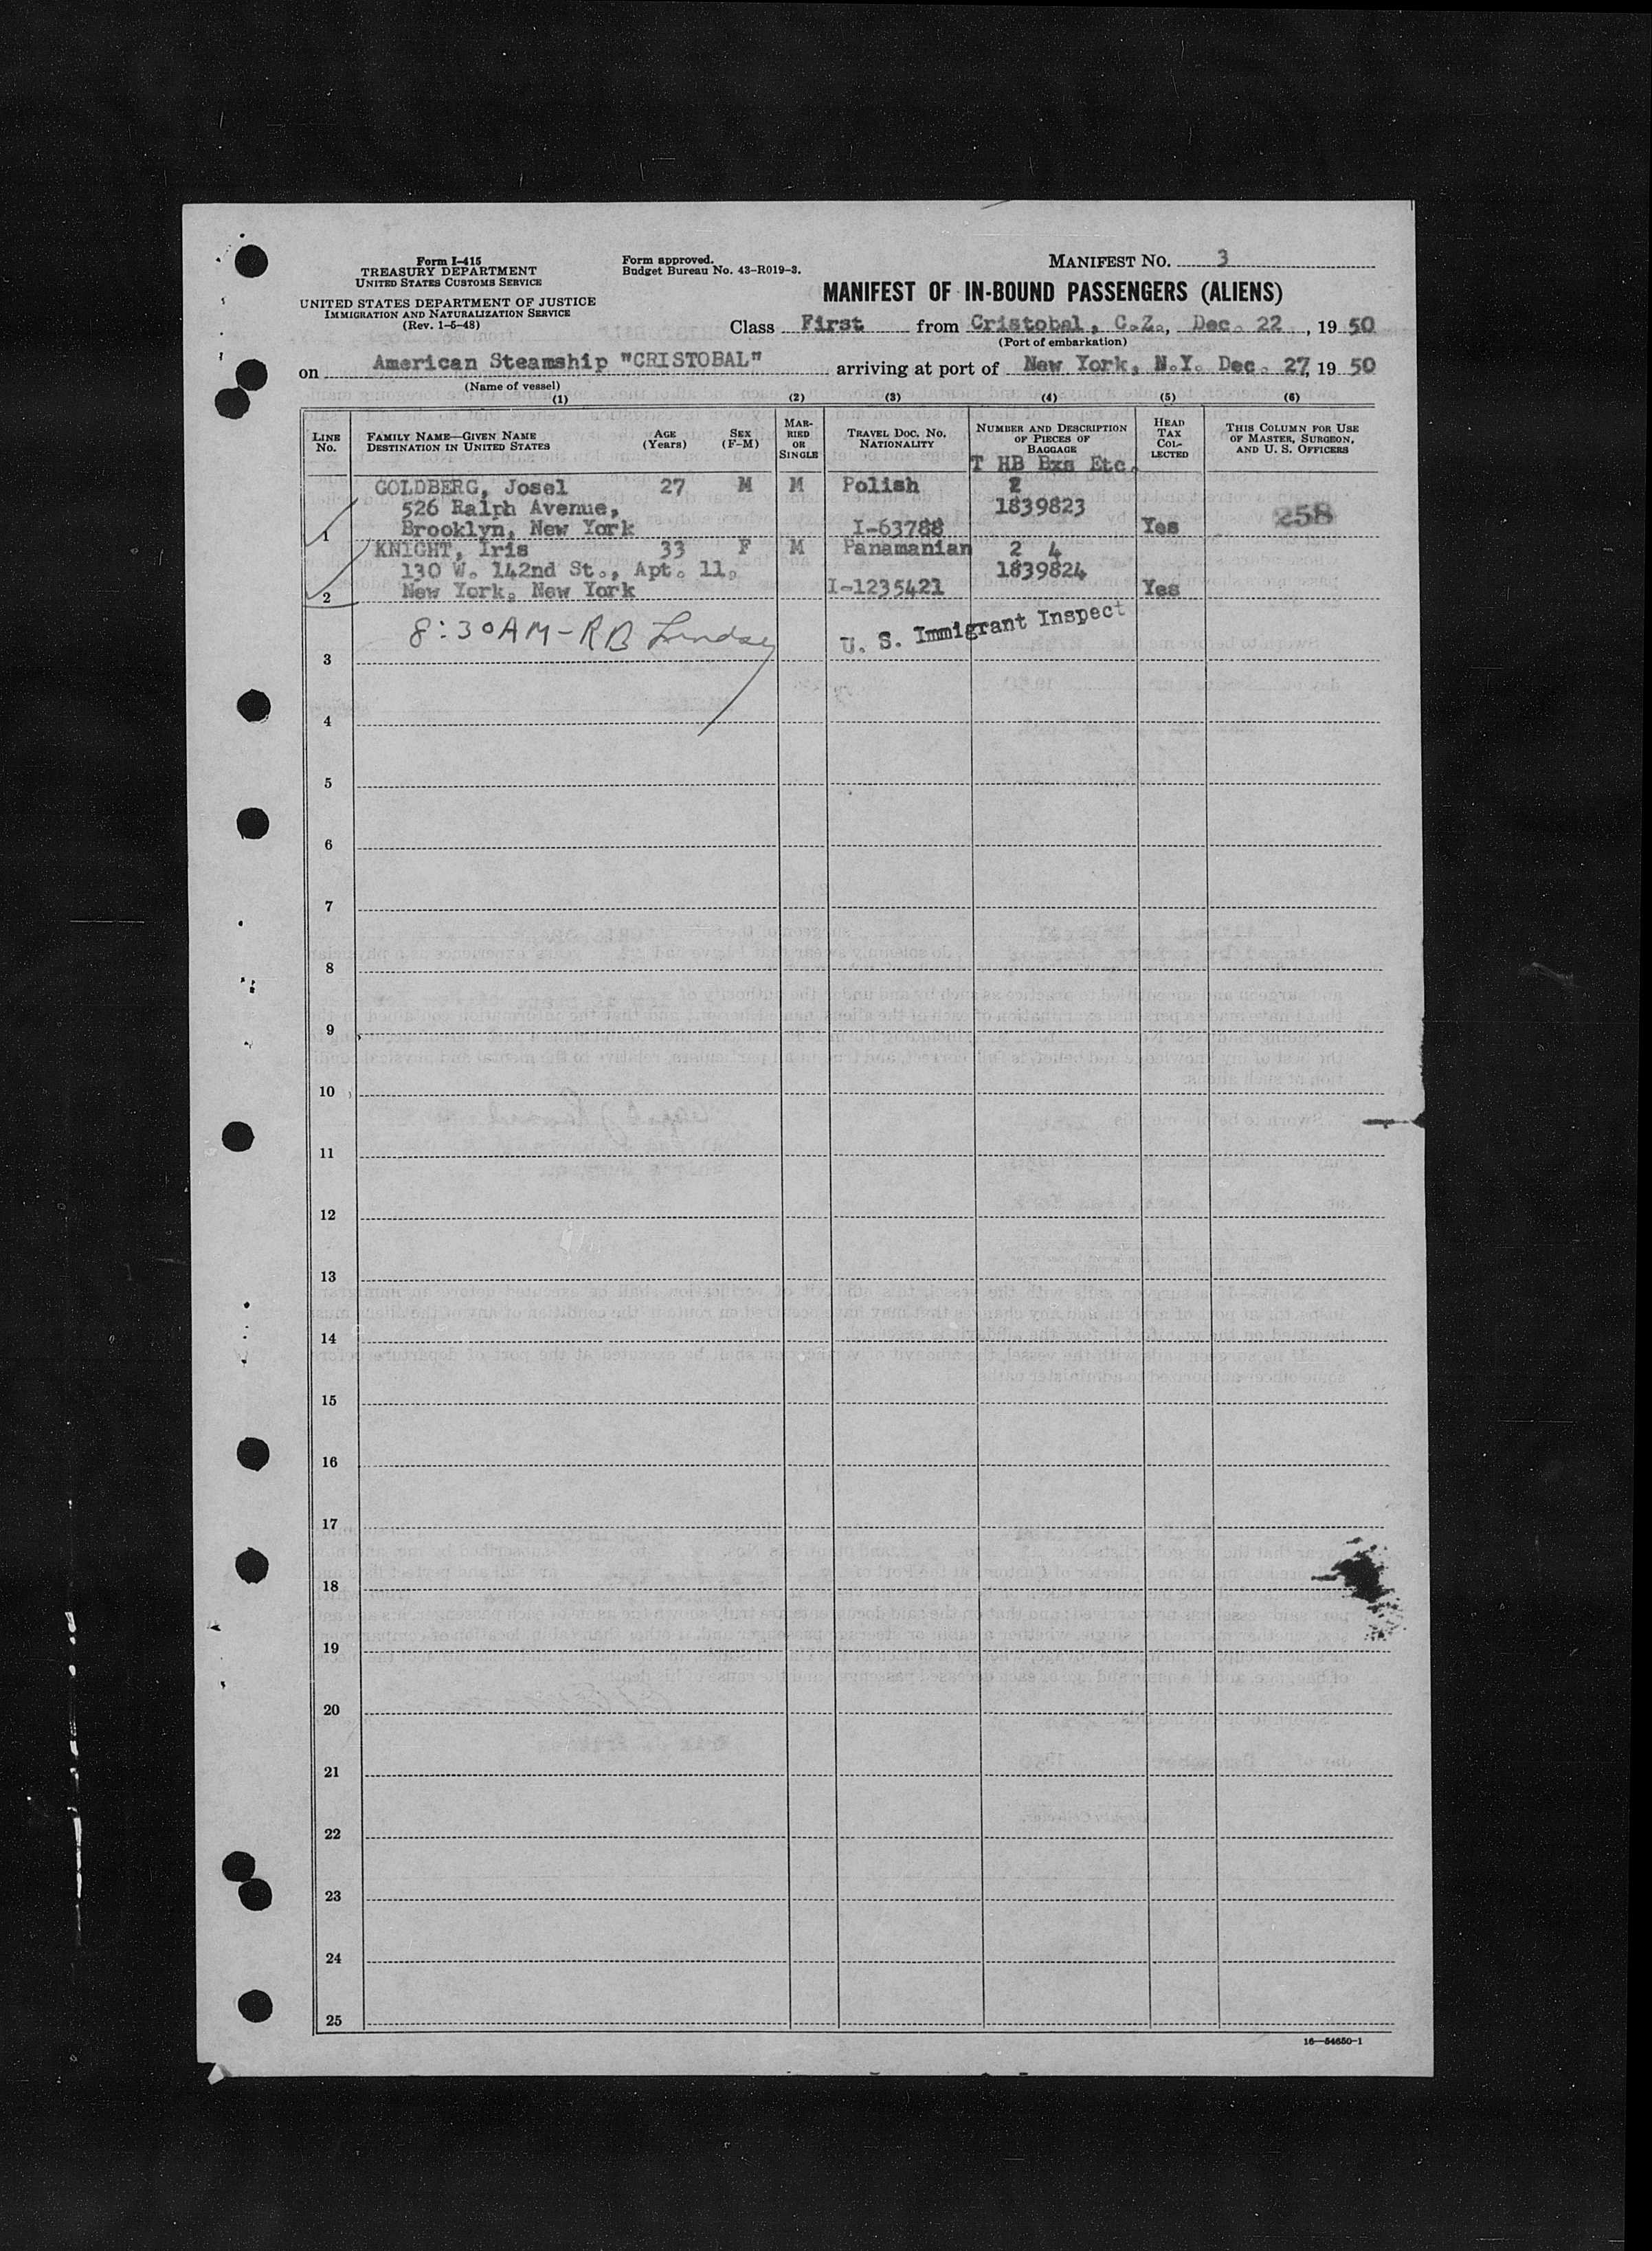 Form I-415
TREASURY DEPARTMENT
UNITED STATES CUSTOMS SERVICE
UNITED STATES DEPARTMENT OF JUSTICE
IMMIGRATION AND NATURALIZATION SERVICE
(Rev. 1-5-48)
Form approved.
Budget Bureau No. 43-R019-3.
MANIFEST NO. 3
MANIFEST OF IN-BOUND PASSENGERS (ALIENS)
Class First from Cristobal, C.Z., Dec. 22, 1950
(Port of embarkation)
on American Steamship "CRISTOBAL" arriving at port of New York, N.Y. Dec. 27, 1950
(Name of vessel)
(1) (2) (3) (4) (5) (6)
LINE No.
FAMILY NAME—GIVEN NAME
DESTINATION IN UNITED STATES
AGE (Years)
SEX (F-M)
MARRIED OR SINGLE
TRAVEL DOC. NO. NATIONALITY
NUMBER AND DESCRIPTION OF PIECES OF BAGGAGE
HEAD TAX COLLECTED
THIS COLUMN FOR USE OF MASTER, SURGEON, AND U. S. OFFICERS
T HB Bxs Etc.
GOLDBERG, Josel 27 M M Polish 2
526 Ralph Avenue, 1839823
1 Brooklyn, New York I-63788 Yes 258
KNIGHT, Iris 33 F M Panamanian 2 4
130 W. 142nd St., Apt. 11, 1839824
2 New York, New York I-1235421 Yes
8:30AM-RB Lindsey U. S. Immigrant Inspect
3
4
5
6
7
8
9
10
11
12
13
14
15
16
17
18
19
20
21
22
23
24
25
16—54650-1